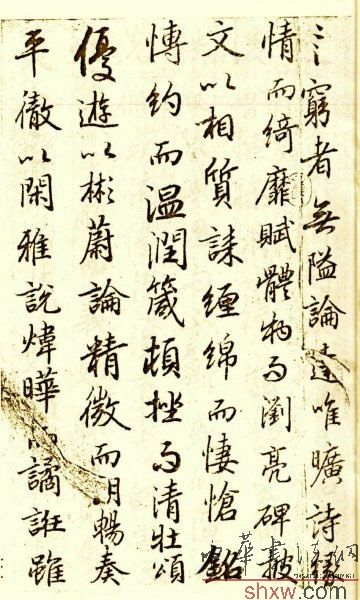 窮者無隘論達唯曠詩緣
情而綺靡賦體物而瀏亮碑披
文以相質誄纏綿而悽愴銘
博約而溫潤箴頓挫而清壯頌
優遊以彬蔚論精微而朗暢奏
平徹以閑雅說煒曄而譎誑雖
中華書法網
shxw.com